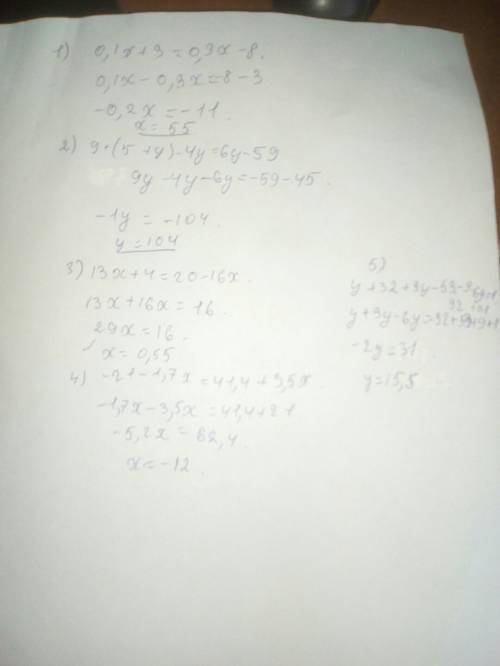 1) 0,1x+3=0,3x-8.
0,1x-0,3x=8-3
-0,2x=-11.
x=55
2) 9·(5+y)-4y=6y-59
9y-4y-6y=-59-45.
-1y=-104.
y=104
3) 13x+4=20-16x.
13x+16x=16.
29x=16.
x=0,55
4) -21-1,7x=41,4+3,5x.
-1,7x-3,5x=41,4+21
-5,2x=62,4.
x=-12.
5)
-2y=31.
y=15,5